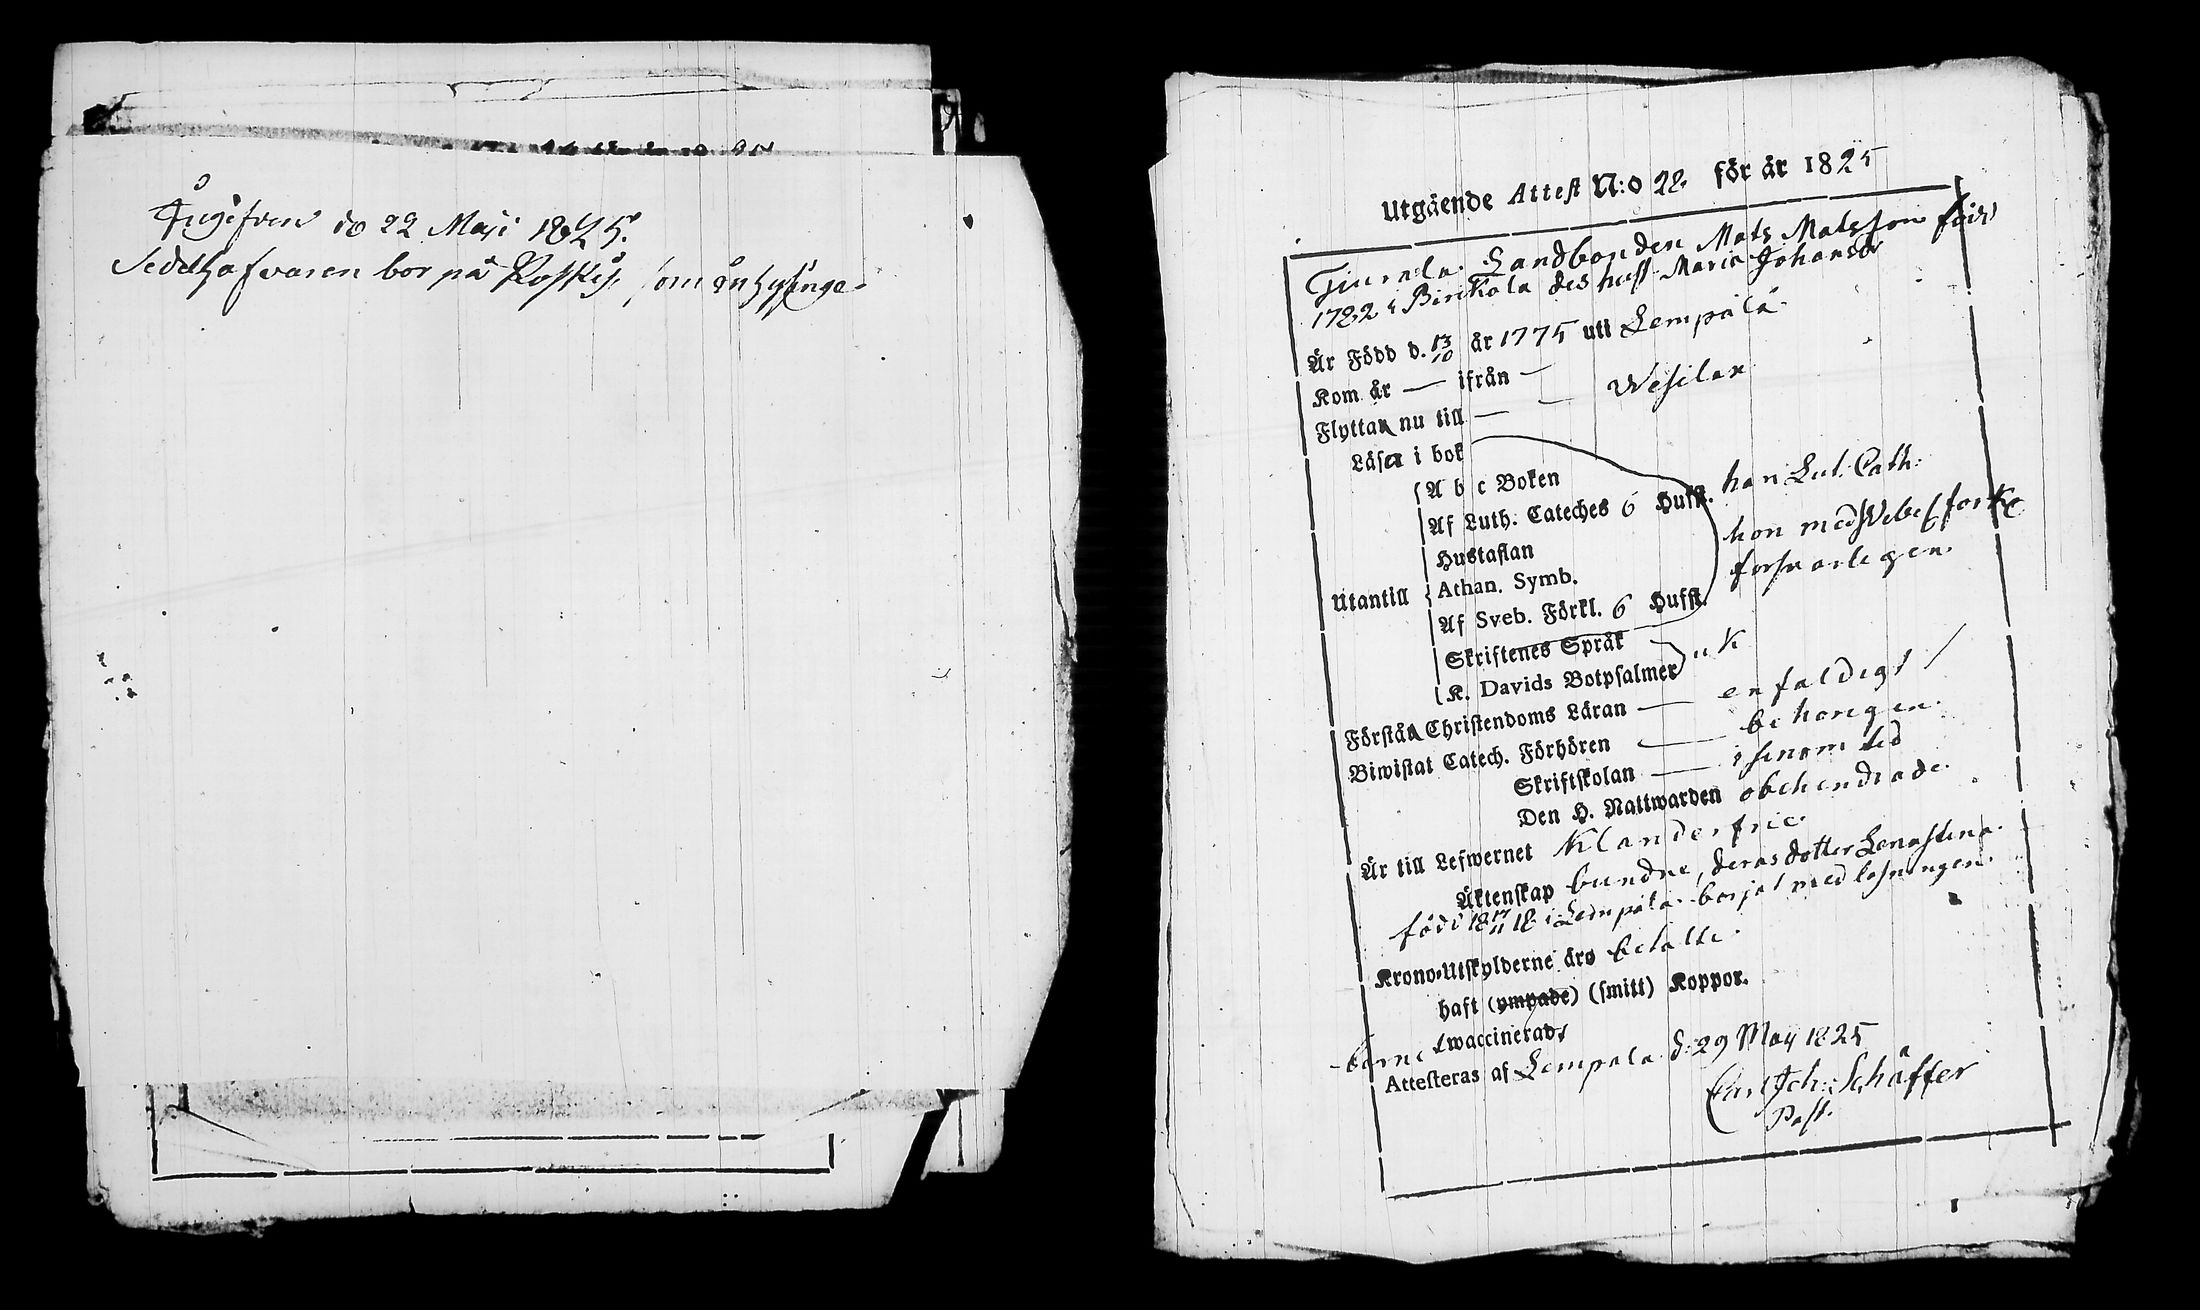 Ingifven d 22 Maji 1825.
Seddelhafvaren bor på Koskis, som inhysinge.
Utgående Attest N:o 28. för år 1825
Landbonden Mats Matsson född
1782 i Birkkala des hust. Maria Johansdr
Är Född d. 13/10 år 1775 uti Lempälä.
Kom år — ifrån —
Flytta nu till — — Wesilax
Läsa i bok
A b c Boken
Af Luth. Cateches 6 Hufst. han Lut. Cath.
Hustaflan
hon med Svebes förk
Athan. Symb.
försvarligen.
Utantill
Af Sveb. Förkl. 6 Hufst.
Skriftenes Språk
K. Davids Botpsalmer
Förstå Christendoms Läran — enfaldigt
Biwistat Catech. Förhören — behörigen.
Skriftskolan —
Den H. Nattwarden obehindrade.
Är till Lefwernet klanderfrie.
Äktenskap bundne, deras dotter Lenastina.
född 18 17/11 18 i Lempälä. börjat med läsningen.
Krono-Utskylderne äro betalte.
haft (ympade) (smitt) Koppor.
waccinerad
Attesteras af Lempälä d. 29 Maij 1825
Carl Joh: Schäffer
Past.